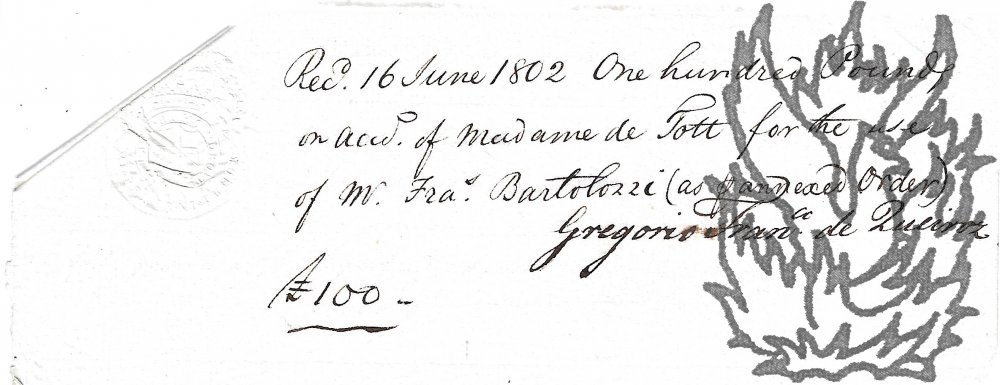 Rec.d 16 June 1802 One hundred Pounds
on Acct. of Madame de Tott for the use
of Mr. Fra.s Bartolozzi (as p annexed Order)
Gregorio Fran.co de Queiroz
£100 -